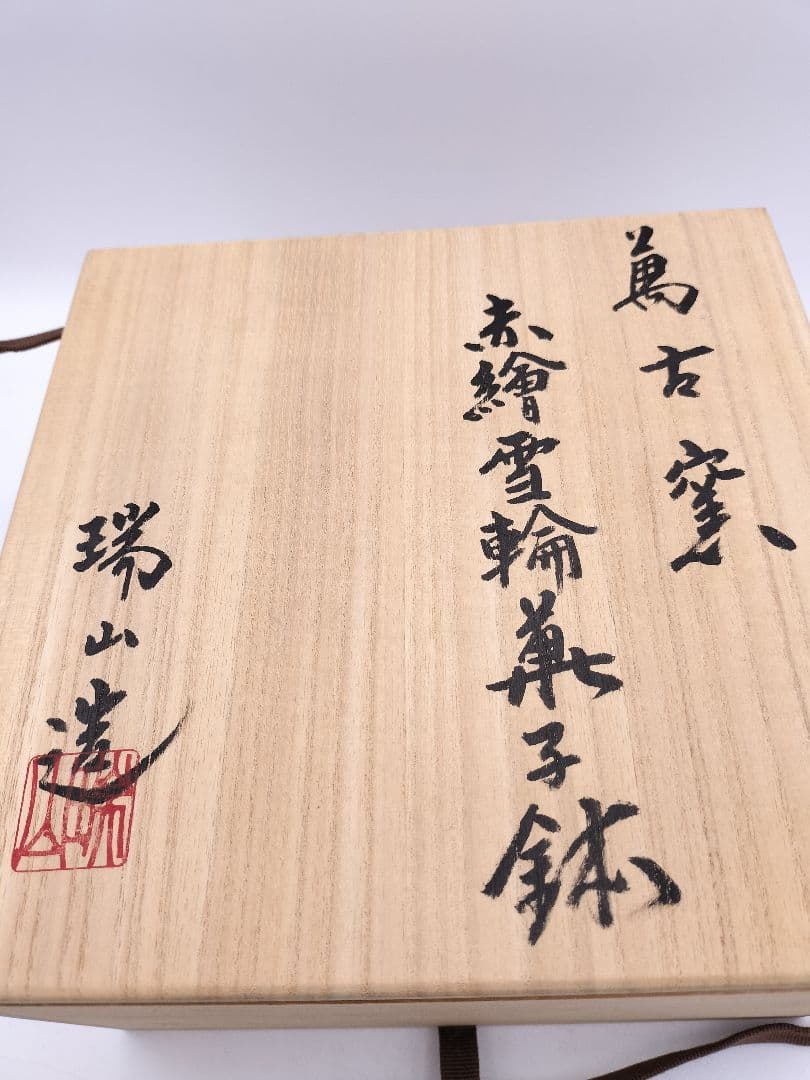 萬古窯
赤繪雪輪菓子鉢
瑞山造